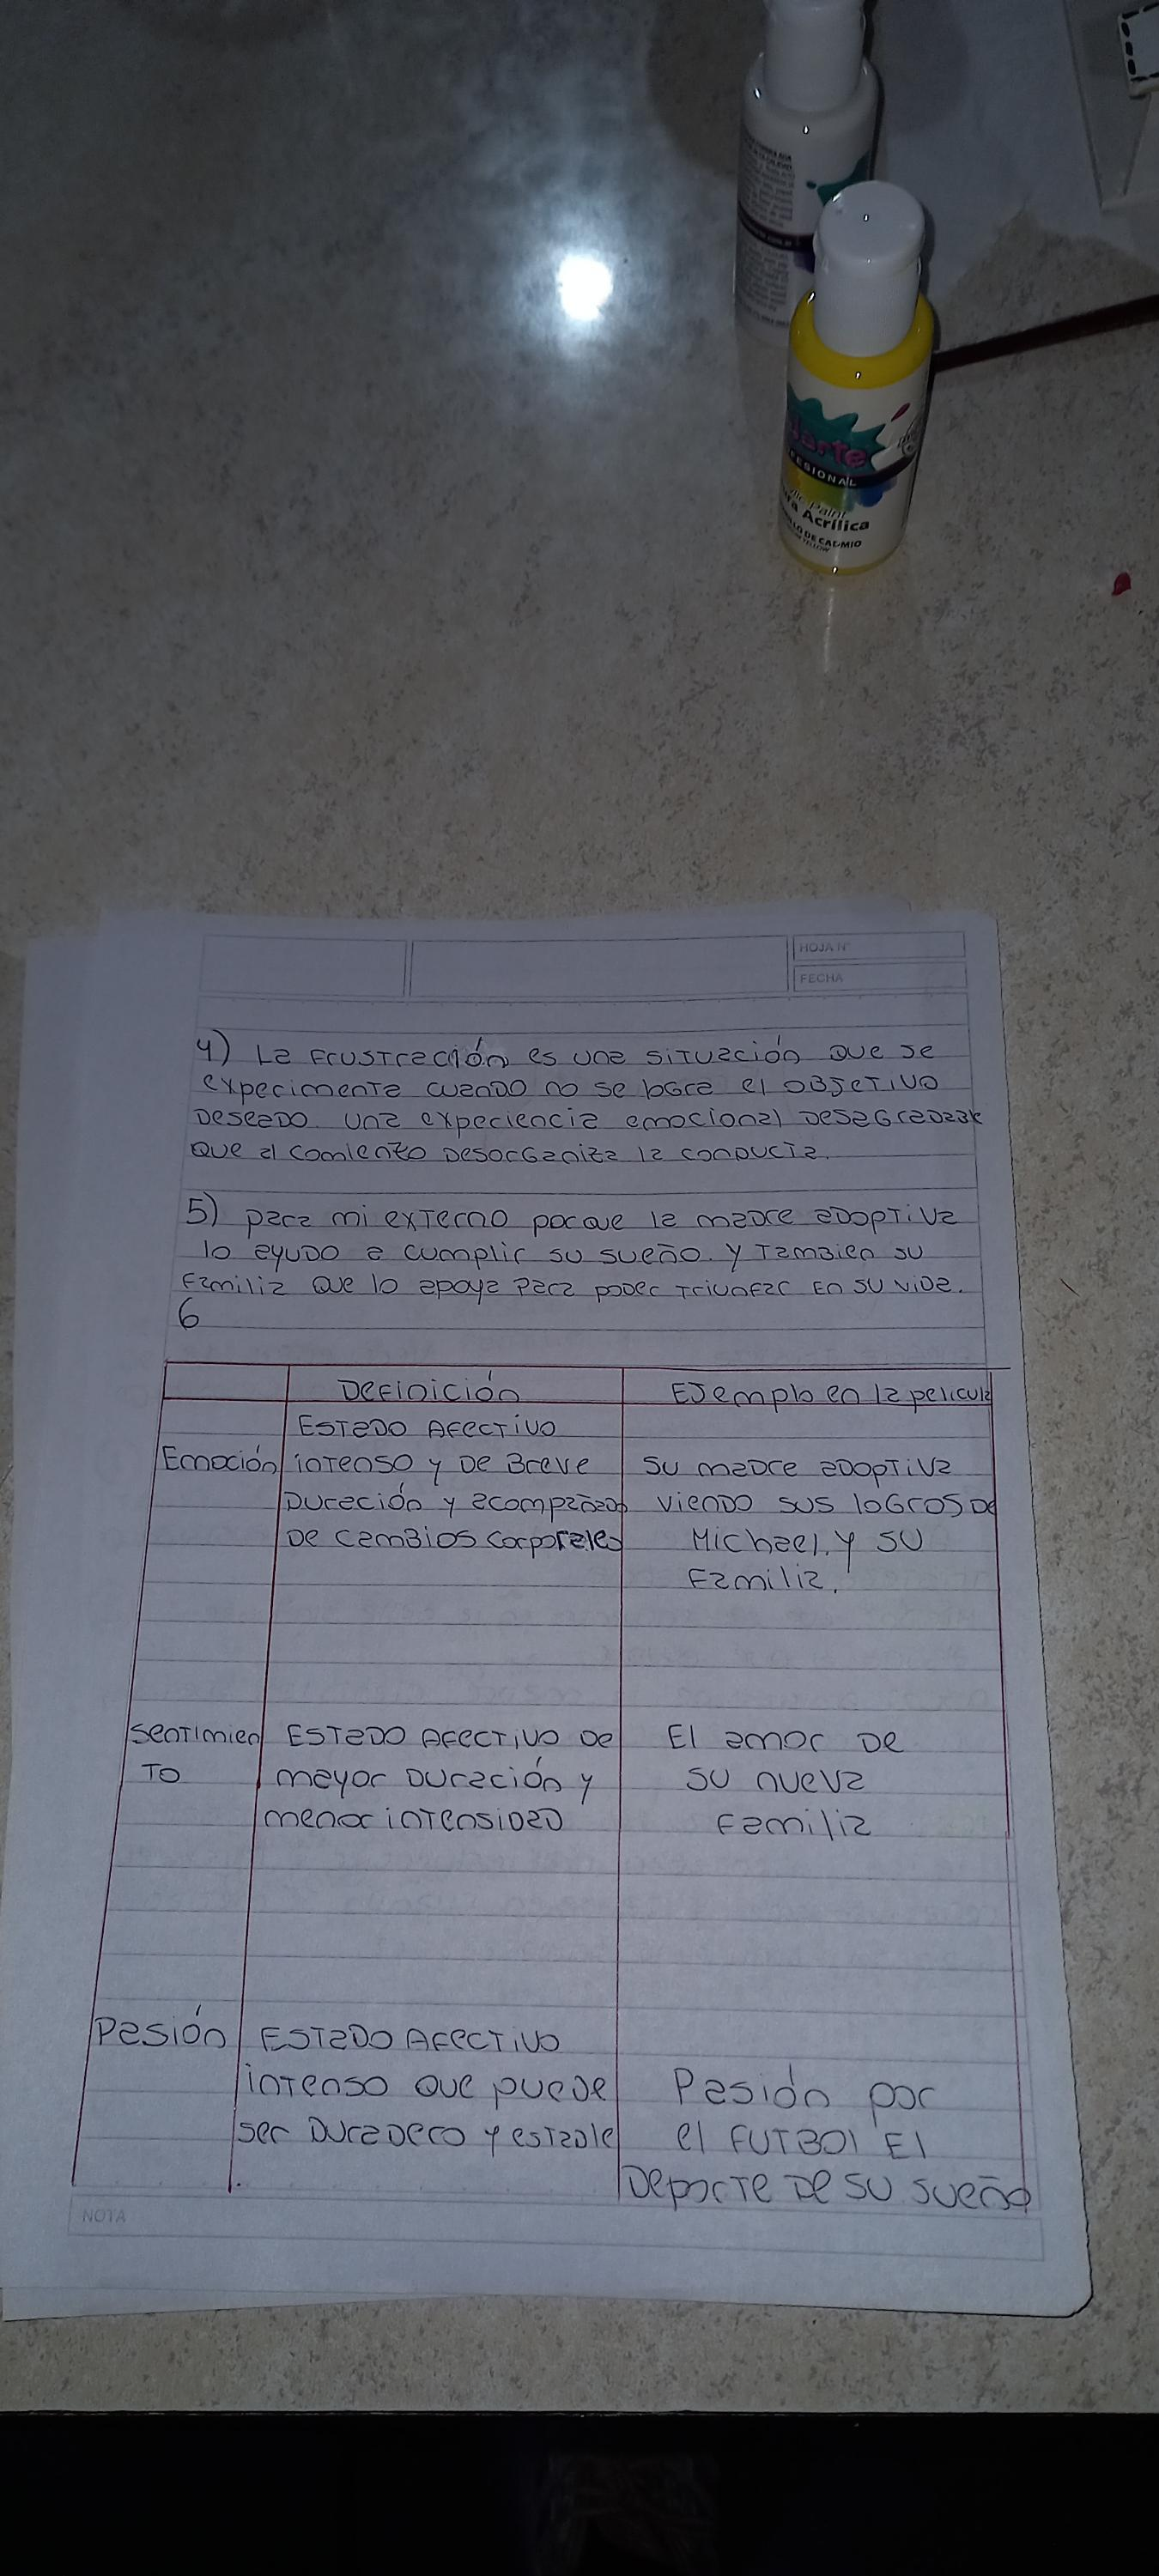 arte
ESIONAL
Acrílica
DE CADMIO
YELLOW
HOJA N°
FECHA
4) La frustración es una situación que se
experimenta cuando no se logra el objetivo
deseado. una experiencia emocional desagradable
que al comienzo desorganiza la conducta.
5) para mi externo porque la madre adoptiva
lo ayudo a cumplir su sueño. y tambien su
familia que lo apoya para poder triunfar en su vida.
6
Definición
Ejemplo en la pelicula
Emoción
Estado Afectivo
intenso y de Breve
Duración y acompañado
de cambios corporales
su madre adoptiva
viendo sus logros de
Michael. y su
familia.
sentimien
to
Estado Afectivo de
mayor Duración y
menor intensidad
El amor de
su nueva
familia
Pasión
Estado Afectivo
intenso que puede
ser Duradero y estable
Pasión por
el futbol El
Deporte de su sueño
NOTA